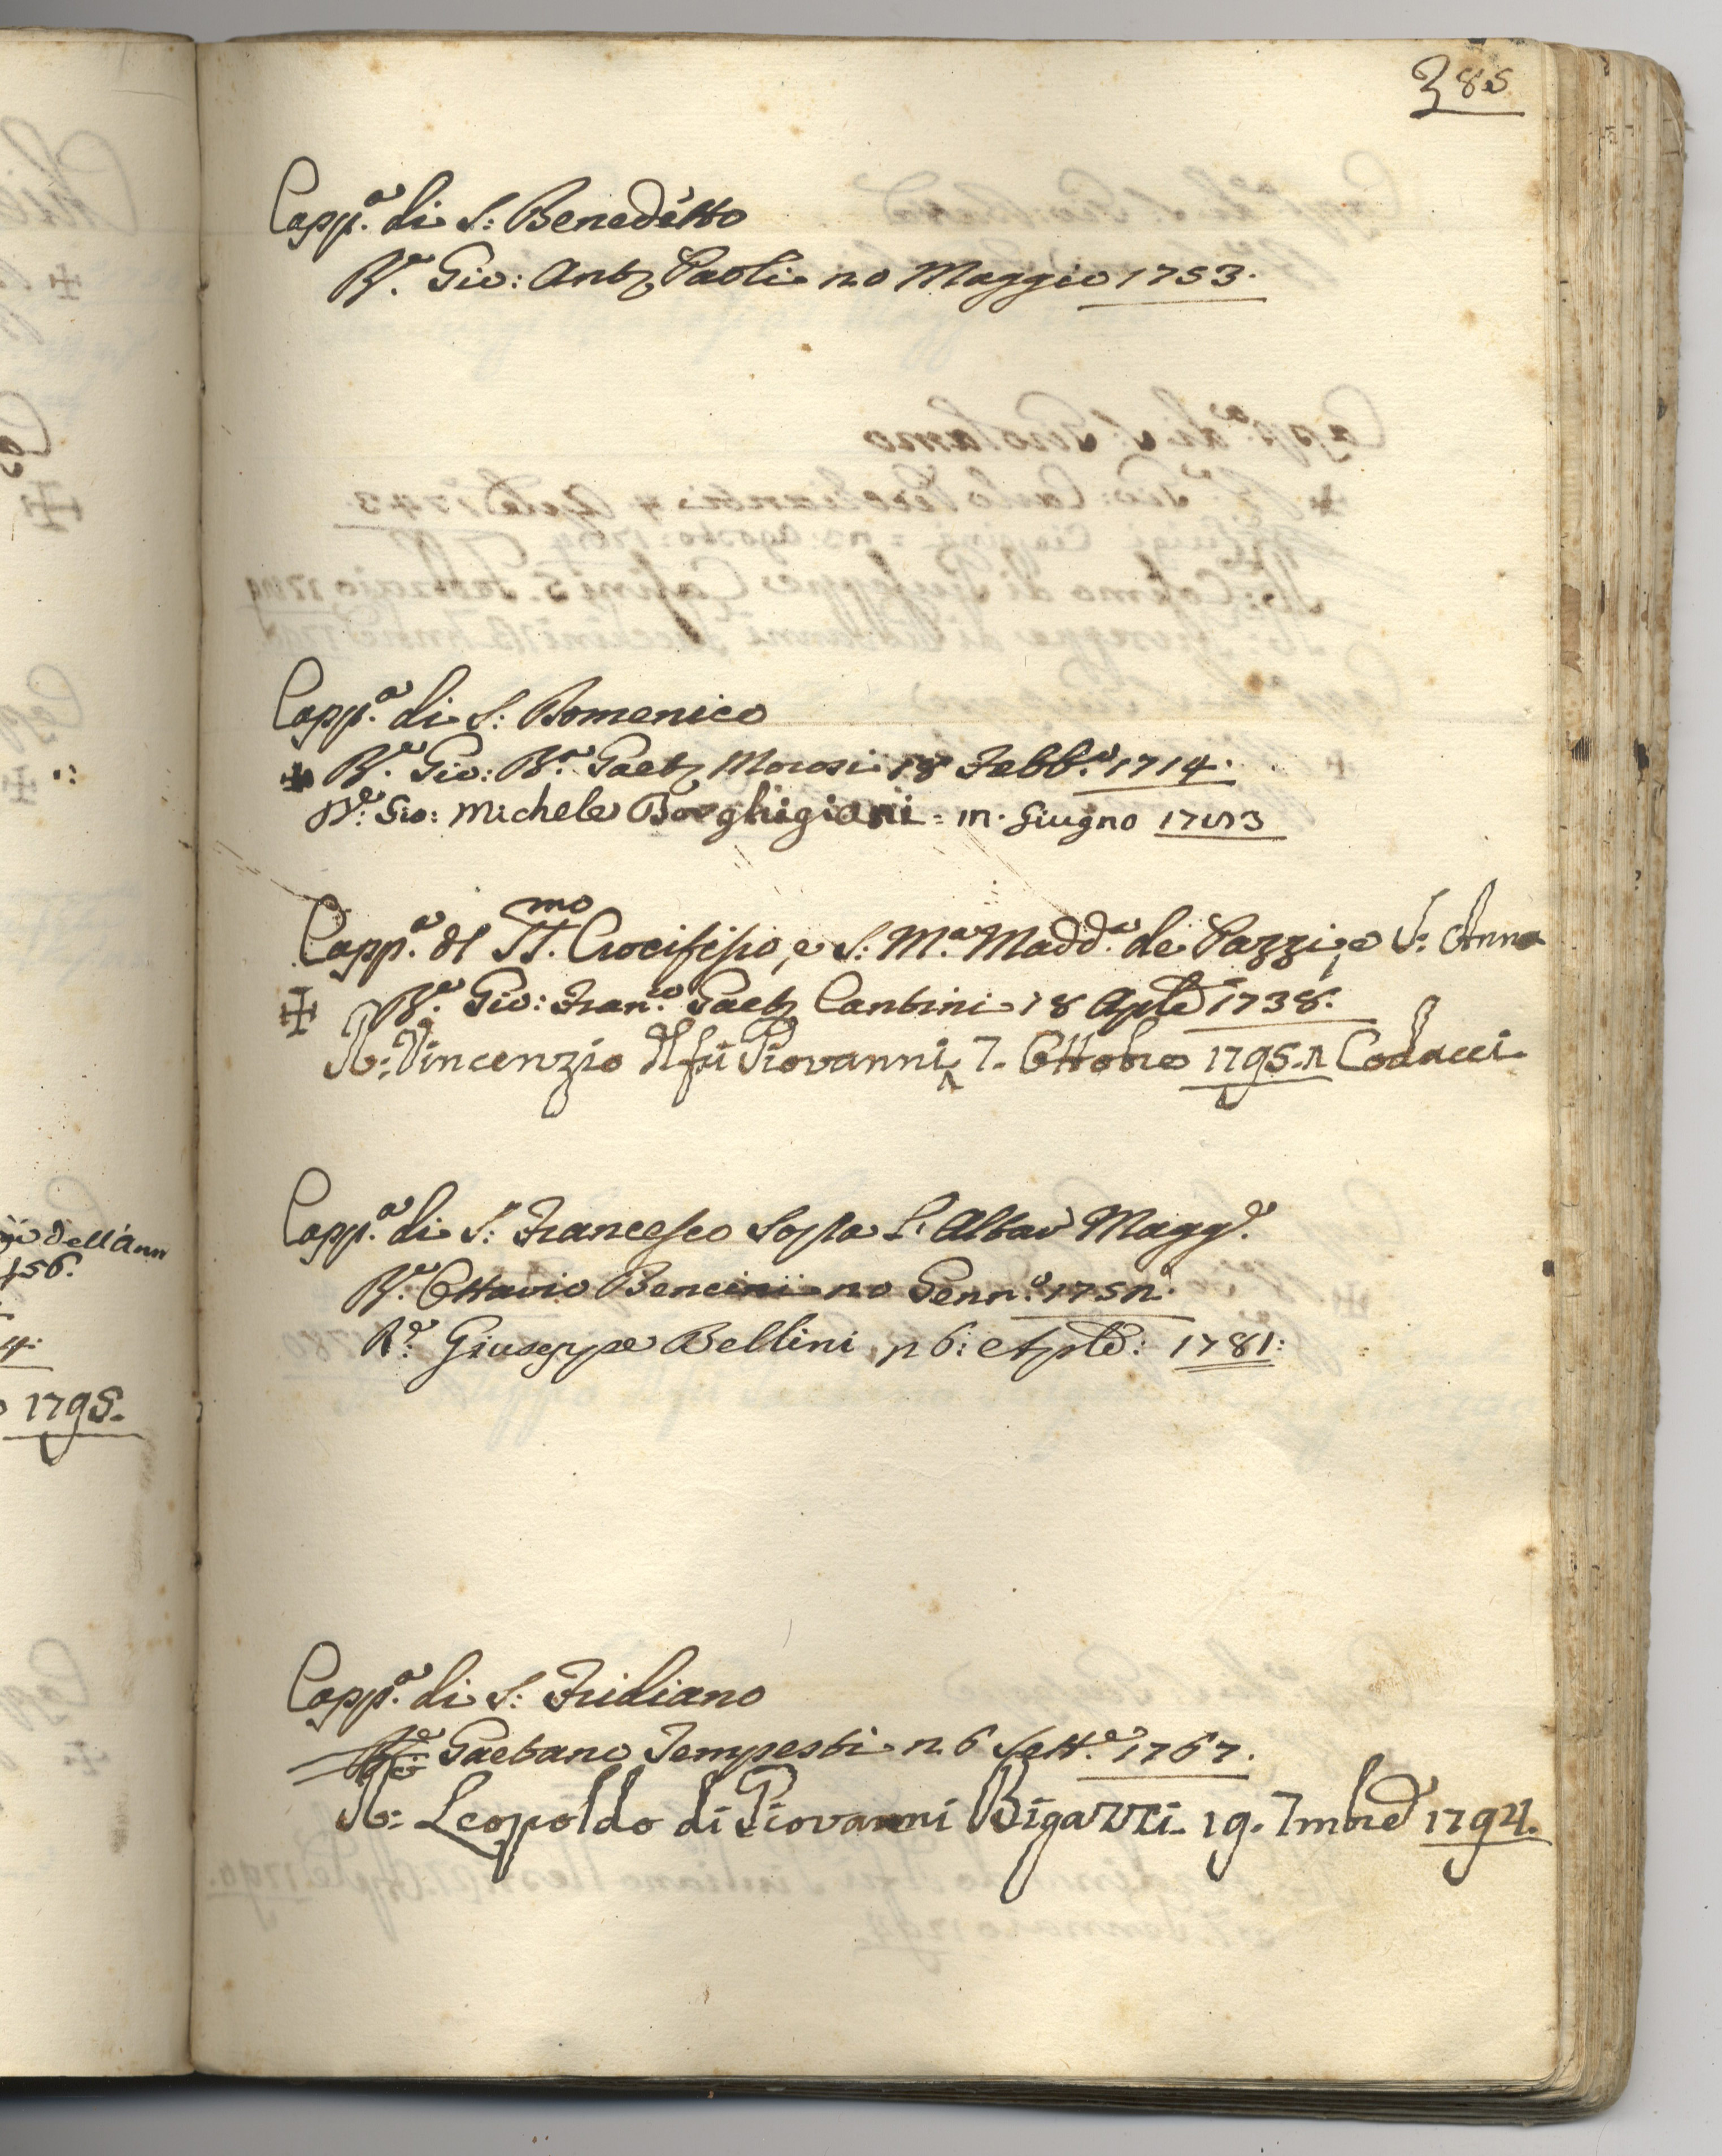 385
Capp.ª di S: Benedetto
R.e Gio: Ant.º Paoli 20 Maggio 1753.
Capp.ª di S: Domenico
✠ R.e Gio: B.ª Gaet.º 18 Febb.º 1714.
R.e Gio: Michele Borghigiani = Giugno
Capp.ª dl SS.mo Crocifisso, e S: M.ª Madd.ª de Pazzi, e S: Anna
✠ R.e Gio: Fran.co Gaet.º Cantini 18 Aple 1738.
R: Vincenzio dl fù Giovanni ^ 7. Ottobre 1795. ^ Codacci
Capp.ª di S: Francesco Sopra l'Altar Magg.e
R.e Ottavio Bencini 20 Genn.º 1752.
R.e Giuseppe Bellini 26: Aple: 1781:
Capp.ª di S: Fridiano
R.e Gaetano Tempesti 26 Sett.e 1767.
R: Leopoldo di Giovanni Bigazzi 19. 7mbre 1794.
dell'Ann
56.
1795.